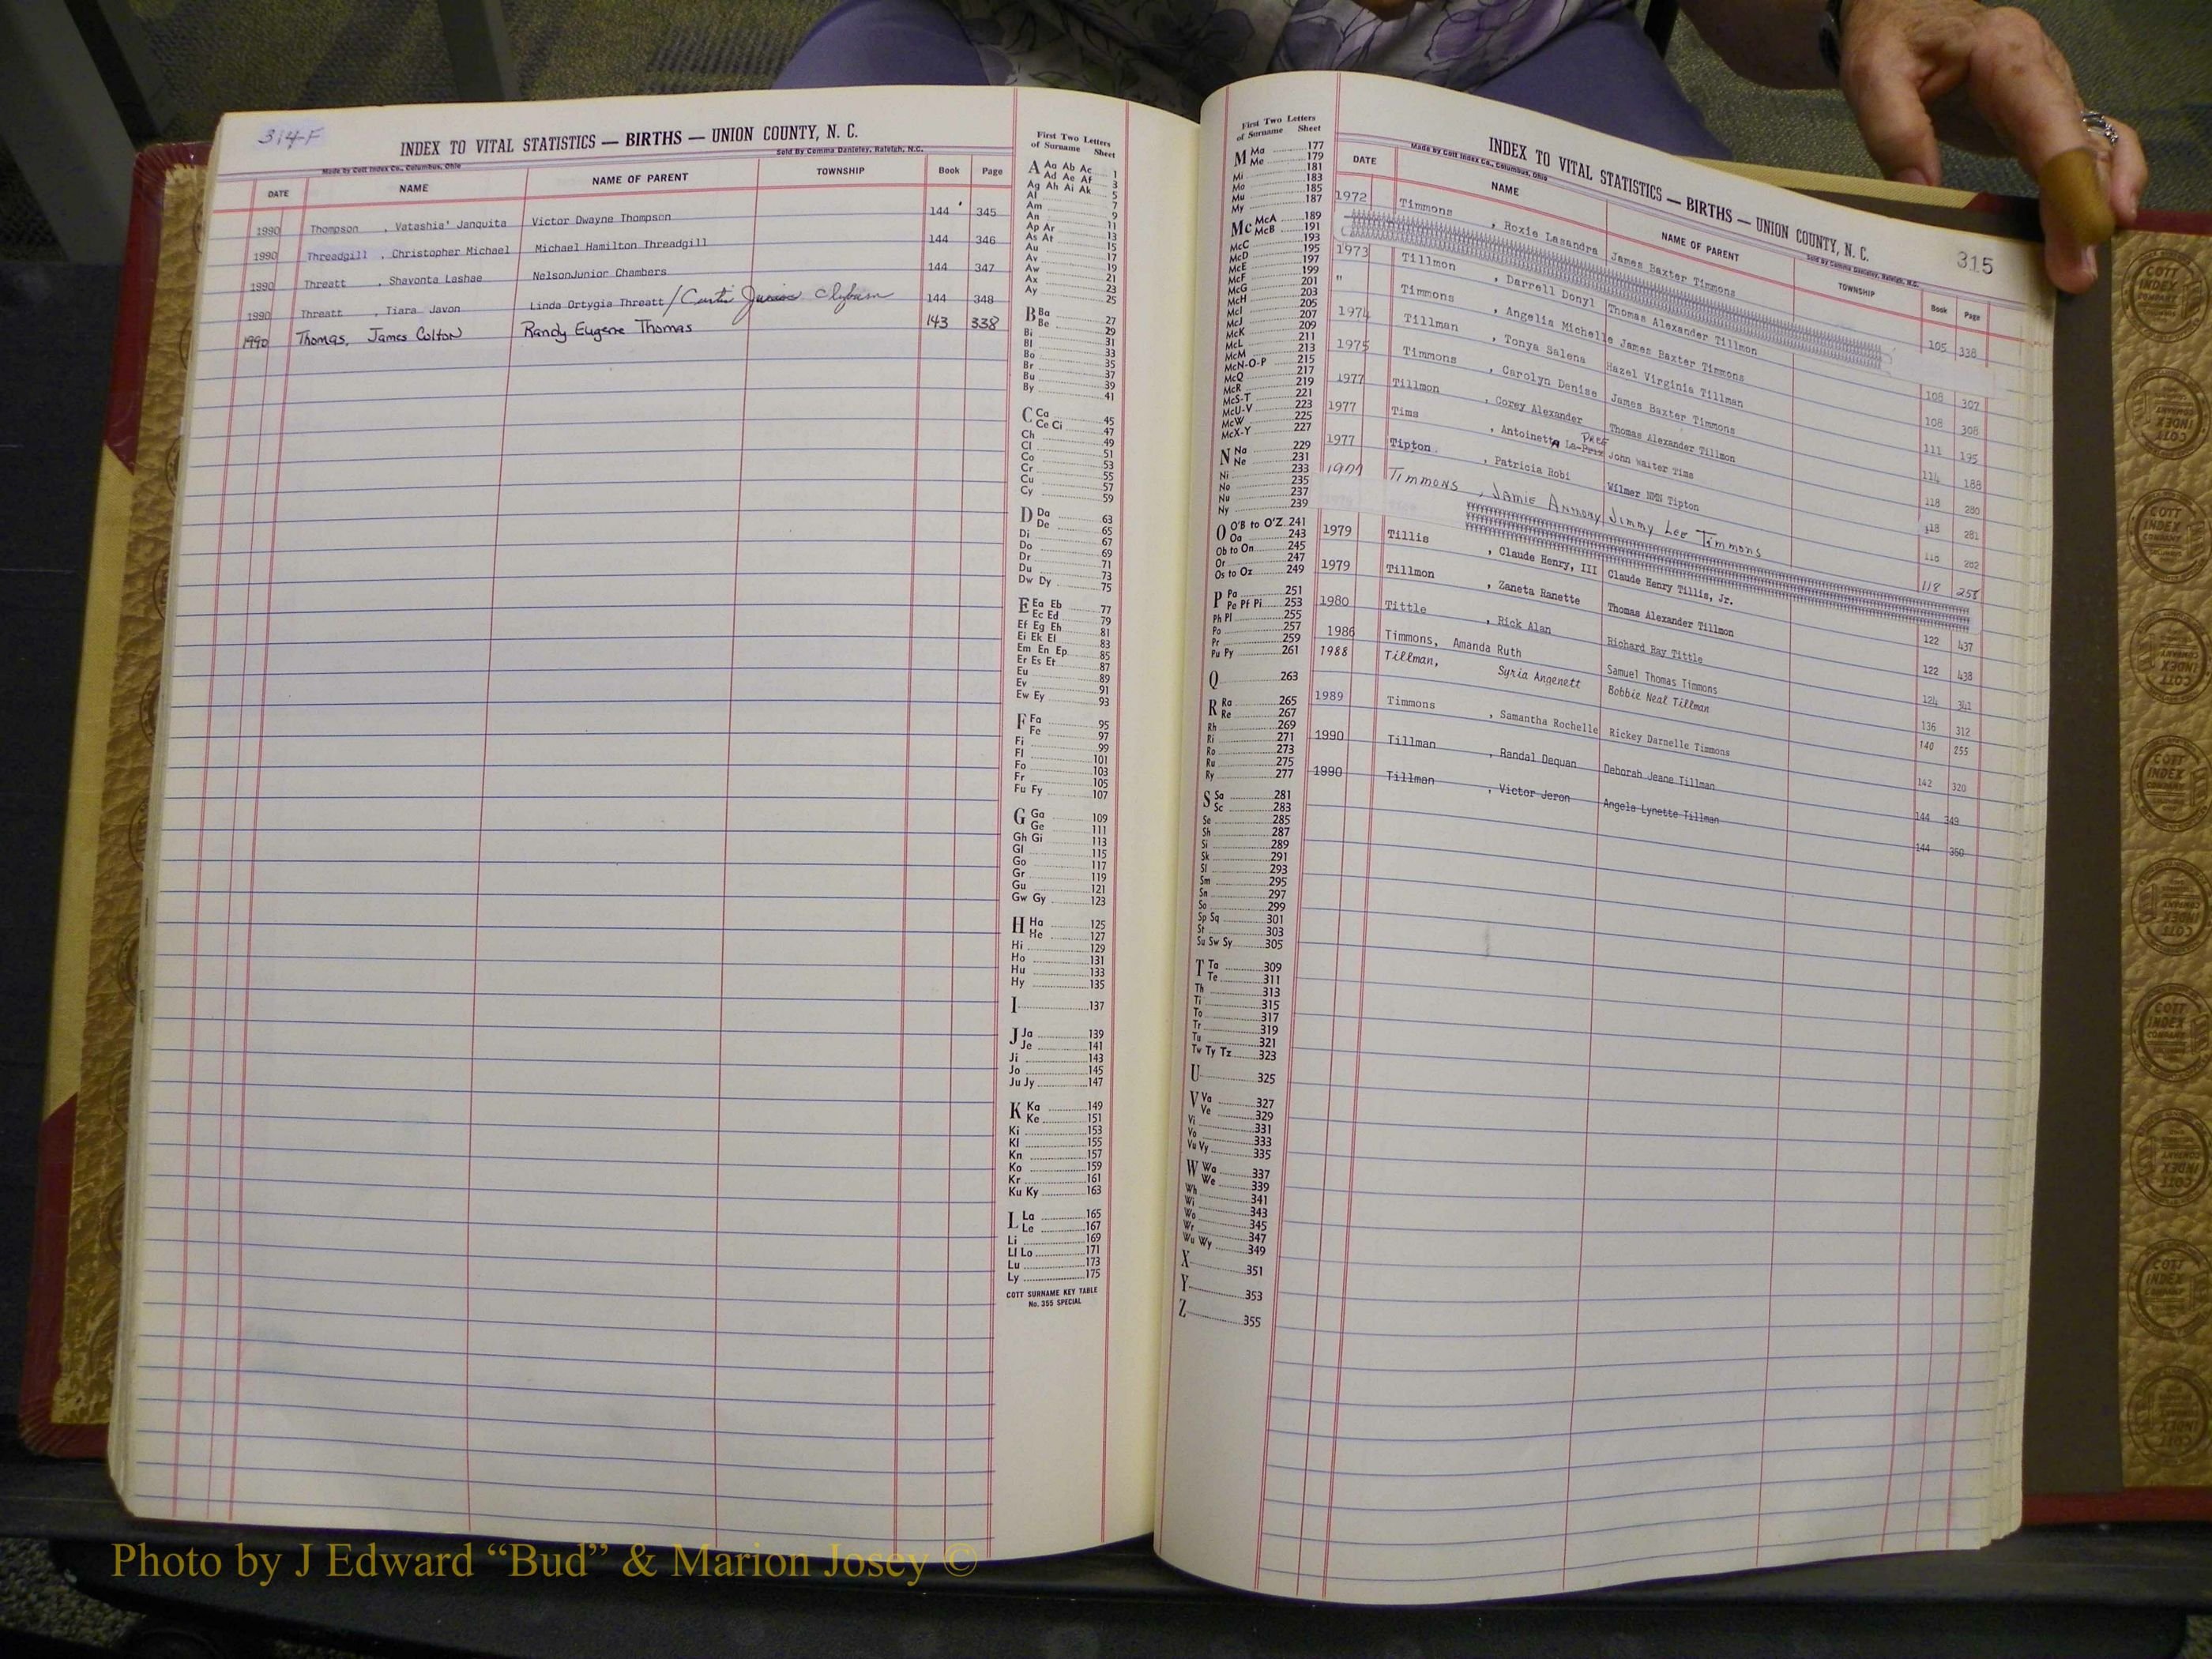 314-F
INDEX TO VITAL STATISTICS — BIRTHS — UNION COUNTY, N. C.
Made by Cott Index Co., Columbus, Ohio Sold by Comma Danieley, Raleigh, N.C.
DATE NAME NAME OF PARENT TOWNSHIP Book Page
1990 Thompson , Vatashia' Janquita Victor Dwayne Thompson 144 345
1990 Threadgill , Christopher Michael Michael Hamilton Threadgill 144 346
1990 Threatt , Shavonta Lashae NelsonJunior Chambers 144 347
1990 Threatt , Tiara Javon Linda Ortygia Threatt / Curtis Junior Clyburn 144 348
1990 Thomas, James Colton Randy Eugene Thomas 143 338
First Two Letters
of Surname Sheet
A Aa Ab Ac 1
Ad Ae Af 3
Ag Ah Ai Ak 5
Al 7
Am 9
An 11
Ap Ar 13
As At 15
Au 17
Av 19
Aw 21
Ax 23
Ay 25
B Ba 27
Be 29
Bi 31
Bl 33
Bo 35
Br 37
Bu 39
By 41
C Ca 45
Ce Ci 47
Ch 49
Cl 51
Co 53
Cr 55
Cu 57
Cy 59
D Da 63
De 65
Di 67
Do 69
Dr 71
Du 73
Dw Dy 75
E Ea Eb 77
Ec Ed 79
Ef Eg Eh 81
Ei Ek El 83
Em En Ep 85
Er Es Et 87
Eu 89
Ev 91
Ew Ey 93
F Fa 95
Fe 97
Fi 99
Fl 101
Fo 103
Fr 105
Fu Fy 107
G Ga 109
Ge 111
Gh Gi 113
Gl 115
Go 117
Gr 119
Gu 121
Gw Gy 123
H Ha 125
He 127
Hi 129
Ho 131
Hu 133
Hy 135
I 137
J Ja 139
Je 141
Ji 143
Jo 145
Ju Jy 147
K Ka 149
Ke 151
Ki 153
Kl 155
Kn 157
Ko 159
Kr 161
Ku Ky 163
L La 165
Le 167
Li 169
Ll Lo 171
Lu 173
Ly 175
COTT SURNAME KEY TABLE
No. 355 SPECIAL
First Two Letters
of Surname Sheet
M Ma 177
Me 179
Mi 181
Mo 183
Mu 185
My 187
Mc McA 189
McB 191
McC 193
McD 195
McE 197
McF 199
McG 201
McH 203
McI 205
McJ 207
McK 209
McL 211
McM 213
McN-O-P 215
McQ 217
McR 219
McS-T 221
McU-V 223
McW 225
McX-Y 227
N Na 229
Ne 231
Ni 233
No 235
Nu 237
Ny 239
O O'B to O'Z 241
Oa 243
Ob to On 245
Or 247
Os to Oz 249
P Pa 251
Pe Pf Pi 253
Ph Pl 255
Po 257
Pr 259
Pu Py 261
Q 263
R Ra 265
Re 267
Rh 269
Ri 271
Ro 273
Ru 275
Ry 277
S Sa 281
Sc 283
Se 285
Sh 287
Si 289
Sk 291
Sl 293
Sm 295
Sn 297
So 299
Sp Sq 301
St 303
Su Sw Sy 305
T Ta 309
Te 311
Th 313
Ti 315
To 317
Tr 319
Tu 321
Tw Ty Tz 323
U 325
V Va 327
Ve 329
Vi 331
Vo 333
Vu Vy 335
W Wa 337
We 339
Wh 341
Wi 343
Wo 345
Wr 347
Wu Wy 349
X 351
Y 353
Z 355
315
INDEX TO VITAL STATISTICS — BIRTHS — UNION COUNTY, N. C.
Made by Cott Index Co., Columbus, Ohio Sold by Comma Danieley, Raleigh, N.C.
DATE NAME NAME OF PARENT TOWNSHIP Book Page
1972 Timmons , Roxie Lasandra James Baxter Timmons 105 338
1973 Tillmon , Darrell Donyl Thomas Alexander Tillmon 108 307
" Timmons , Angelia Michelle James Baxter Timmons 108 308
1974 Tillman , Tonya Salena Hazel Virginia Tillman 111 195
1975 Timmons , Carolyn Denise James Baxter Timmons 114 188
1977 Tillmon , Corey Alexander Thomas Alexander Tillmon 118 280
1977 Tims , Antoinetta John Walter Tims 118 281
1977 Tipton , Patricia Robi Wilmer NMN Tipton 118 282
1977 Timmons , Jamie Anthony Jimmy Lee Timmons 118
1979 Tillis , Claude Henry, III Claude Henry Tillis, Jr. 122 437
1979 Tillmon , Zaneta Ranette Thomas Alexander Tillmon 122 438
1980 Tittle , Rick Alan Richard Ray Tittle 124 341
1986 Timmons, Amanda Ruth Samuel Thomas Timmons 136 312
1988 Tillman, Syria Angenett Bobbie Neal Tillman 140 255
1989 Timmons , Samantha Rochelle Rickey Darnelle Timmons 142 320
1990 Tillman , Randal Dequan Deborah Jeane Tillman 144 349
1990 Tillman , Victor Jeron Angela Lynette Tillman 144 350
COTT
INDEX
COMPANY
Photo by J Edward “Bud” & Marion Josey ©